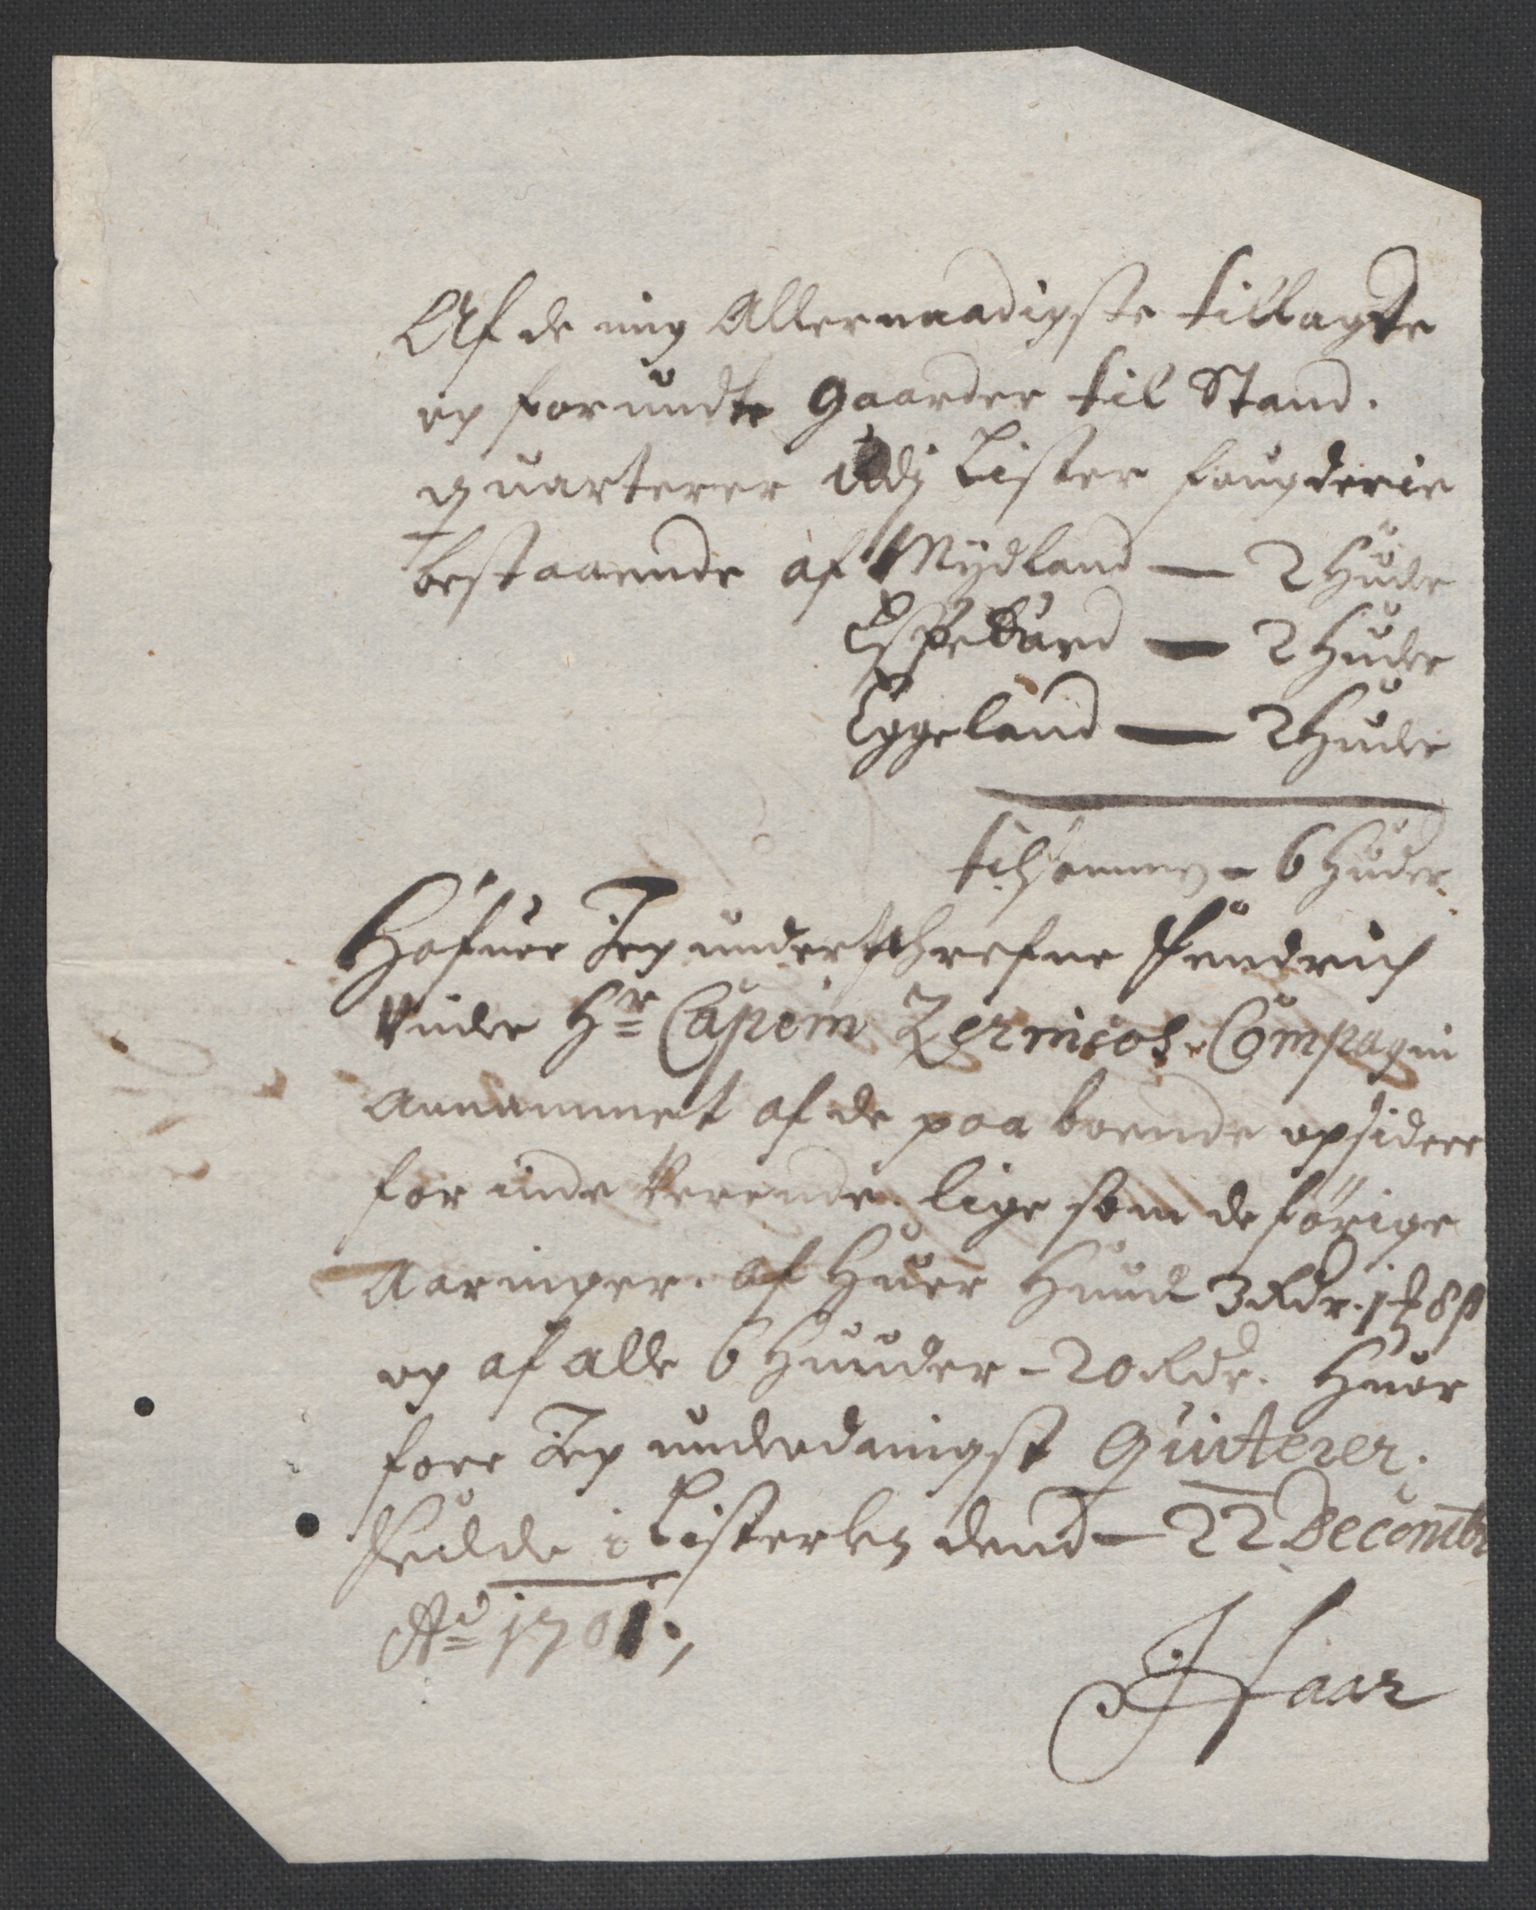 Af de mig Allernaadigste tillagte
og forundte gaarder til Stand.
quarterer udj Lister fougderie
bestaaende af Mydland — 2 Huder
Espeland — 2 Huder
Eggeland — 2 Huder
tilsammen - 6 Huder.
Hafuer Jeg underschrefne
under Hr Capein Compagni
Annammet af de paa boende opsidere
for inde Verende lige som de förige
Aaringer. af Huer Huud 3 Rdr. 1 ort 8 s
og af alle 6 Huuder - 20 Rdr. Huor
fore Jeg underdanigst Quiterer.
i Listerlen dend — 22 Decembr
Ao 1701.,